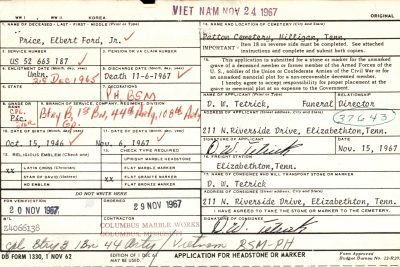 VIET NAM NOV 24 1967
WW I WW II KOREA ORIGINAL
1. NAME OF DECEASED - LAST - FIRST - MIDDLE (Print or Type)
Price, Elbert Ford, Jr.
14. NAME AND LOCATION OF CEMETERY (City and State)
Patton Cemetery, Milligan, Tenn.
2. SERVICE NUMBER
US 52 663 187
3. PENSION OR VA CLAIM NUMBER
15. Item 18 on reverse side must be completed. See attached
instructions and complete and submit both copies.
4. ENLISTMENT DATE (Month, day, year)
Dec 1965
5. DISCHARGE DATE (Month, day, year)
Death 11-6-1967
16. This application is submitted for a stone or marker for the unmarked
grave of a deceased member or former member of the Armed Forces of the
U.S., soldier of the Union or Confederate Armies of the Civil War or for
an unmarked memorial plot for a non-recoverable deceased member.
I hereby agree to accept responsibility for properly placing at grave or
memorial plot at no expense to the Government.
6. STATE
7. DECORATIONS
BSM
NAME OF APPLICANT (Print or Type) RELATIONSHIP
D. W. Tetrick, Funeral Director
8. GRADE
Pfc.
9. BRANCH OF SERVICE, COMPANY, REGIMENT, DIVISION
Btry B, 1st Bn, 44th Arty, 108th Arty
ADDRESS OF APPLICANT (Street address, City and State)
37643
211 N.Riverside Drive, Elizabethton,Tenn.
10. DATE OF BIRTH (Month, day, year)
Oct. 15, 1946
11. DATE OF DEATH (Month, day, year)
Nov. 6, 1967
SIGNATURE OF APPLICANT DATE
D. W. Tetrick Nov. 15, 1967
12. RELIGIOUS EMBLEM (Check one)
13. CHECK TYPE REQUIRED
UPRIGHT MARBLE HEADSTONE
XX LATIN CROSS (Christian)
FLAT MARBLE MARKER
STAR OF DAVID (Hebrew)
XX FLAT GRANITE MARKER
NO EMBLEM
FLAT BRONZE MARKER
FREIGHT STATION
Elizabethton,Tenn.
17. NAME OF CONSIGNEE WHO WILL TRANSPORT STONE OR MARKER
D. W. Tetrick
ADDRESS OF CONSIGNEE (Street address, City and State)
211 N. Riverside Drive, Elizabethton,Tenn.
DO NOT WRITE HERE
FOR VERIFICATION
20 NOV 1967
ORDERED
29 NOV 1967
I HAVE AGREED TO TAKE THE STONE OR MARKER TO THE CEMETERY.
24066138
CONTRACTOR
COLUMBUS MARBLE WORKS
SIGNATURE OF CONSIGNEE
D. W. Tetrick
Cpl Btry B 1 Bn 44 Arty Vietnam BSM-PH
DD FORM 1330, 1 NOV 62
EDITION OF 1 DEC 61
MAY BE USED.
APPLICATION FOR HEADSTONE OR MARKER
Form Approved